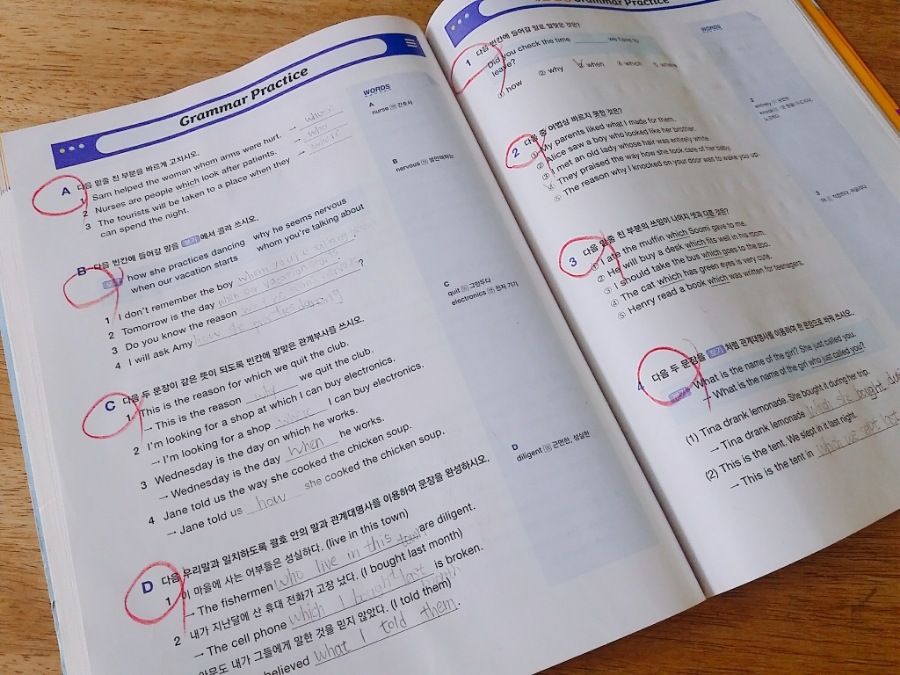 Grammar Practice
WORDS
A 다음 밑줄 친 부분을 바르게 고치시오.
1 Sam helped the woman whom arms were hurt. →
2 Nurses are people which look after patients. → who
3 The tourists will be taken to a place when they →
can spend the night.
A
nurse 간호사
B 다음 빈칸에 들어갈 말을 보기 에서 골라 쓰시오.
보기 how she practices dancing why he seems nervous
when our vacation starts whom you're talking about
1 I don't remember the boy
2 Tomorrow is the day
3 Do you know the reason ?
4 I will ask Amy how she practices dancing
B
nervous
C 다음 두 문장이 같은 뜻이 되도록 빈칸에 알맞은 관계부사를 쓰시오.
1 This is the reason for which we quit the club.
→ This is the reason why we quit the club.
2 I'm looking for a shop at which I can buy electronics.
→ I'm looking for a shop where I can buy electronics.
3 Wednesday is the day on which he works.
→ Wednesday is the day when he works.
4 Jane told us the way she cooked the chicken soup.
→ Jane told us how she cooked the chicken soup.
C
quit 그만두다
electronics 전자 기기
D 다음 우리말과 일치하도록 괄호 안의 말과 관계대명사를 이용하여 문장을 완성하시오.
1 이 마을에 사는 어부들은 성실하다. (live in this town)
→ The fishermen who live in this town are diligent.
2 내가 지난달에 산 휴대 전화가 고장 났다. (I bought last month)
→ The cell phone which I bought last month is broken.
아무도 내가 그들에게 말한 것을 믿지 않았다. (I told them)
believed what I told them.
D
diligent 근면한, 성실한
Grammar Practice
WORDS
1 다음 빈칸에 들어갈 말로 알맞은 것은?
Did you check the time ______ we have to
leave?
① how ② why ③ when ④ which ⑤ where
2 다음 중 어법상 바르지 못한 것은?
① My parents liked what I made for them.
② Alice saw a boy who looked like her brother.
③ I met an old lady whose hair was entirely white.
④ They praised the way how she took care of her baby.
⑤ The reason why I knocked on your door was to wake you up.
3 다음 밑줄 친 부분의 쓰임이 나머지 넷과 다른 것은?
① I ate the muffin which Soomi gave to me.
② He will buy a desk which fits well in his room.
③ I should take the bus which goes to the zoo.
④ The cat which has green eyes is very cute.
⑤ Henry read a book which was written for teenagers.
4 다음 두 문장을 보기 처럼 관계대명사를 이용하여 한 문장으로 바꿔 쓰시오.
보기 What is the name of the girl? She just called you.
→ What is the name of the girl who just called you?
(1) Tina drank lemonade. She bought it during her trip.
→ Tina drank lemonade which she bought
(2) This is the tent. We slept in it last night.
→ This is the tent in which we slept last